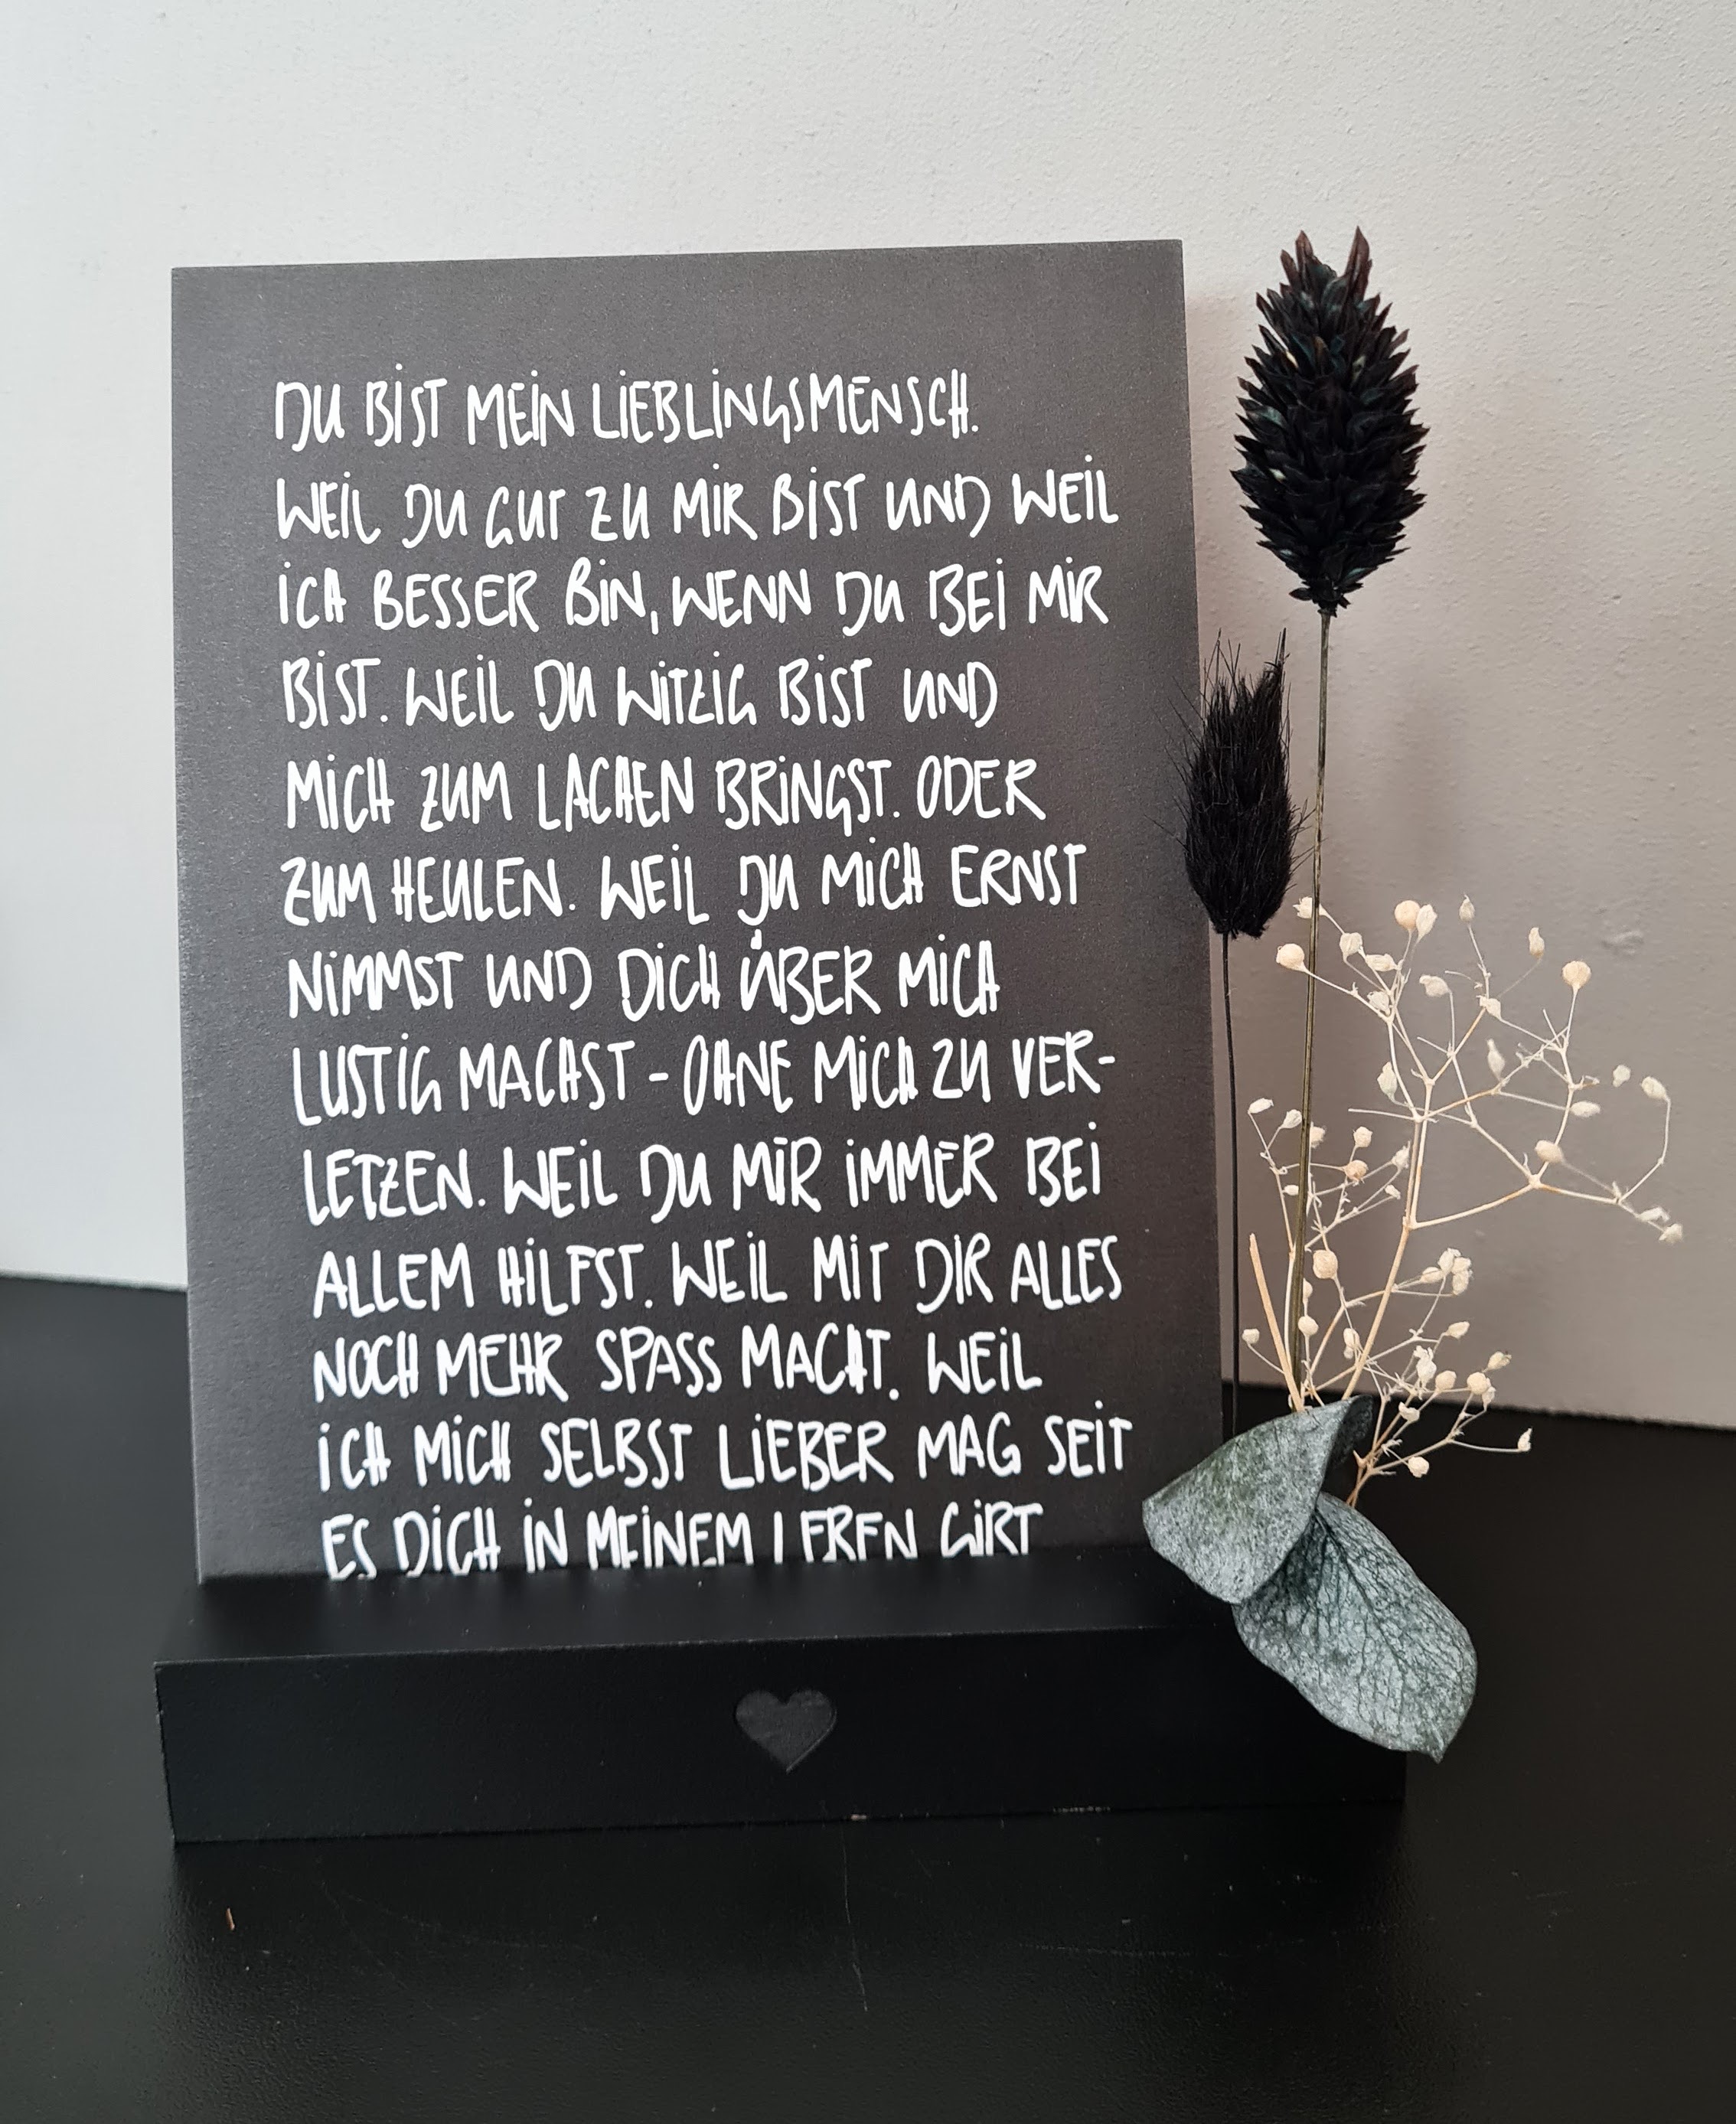 DU BIST MEIN LIEBLINGSMENSCH.
WEIL DU GUT ZU MIR BIST UND WEIL
ICH BESSER BIN, WENN DU BEI MIR
BIST. WEIL DU WITZIG BIST UND
MICH ZUM LACHEN BRINGST. ODER
ZUM HEULEN. WEIL DU MICH ERNST
NIMMST UND DICH ÜBER MICH
LUSTIG MACHST - OHNE MICH ZU VER-
LETZEN. WEIL DU MIR IMMER BEI
ALLEM HILFST. WEIL MIT DIR ALLES
NOCH MEHR SPASS MACHT. WEIL
ICH MICH SELBST LIEBER MAG SEIT
ES DICH IN MEINEM LEBEN GIBT